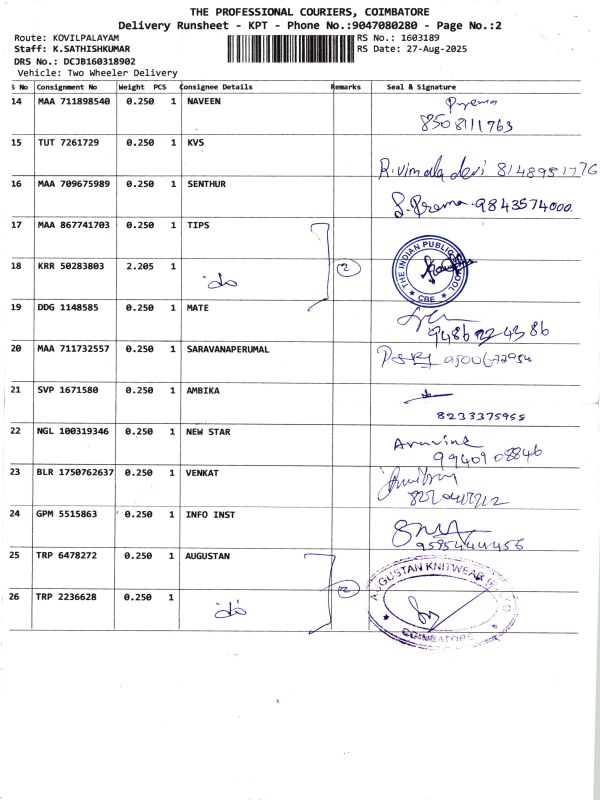 THE PROFESSIONAL COURIERS, COIMBATORE
Delivery Runsheet - KPT - Phone No.:9047080280 - Page No.:2
Route: KOVILPALAYAM RS No.: 1603189
Staff: K.SATHISHKUMAR RS Date: 27-Aug-2025
DRS No.: DCJB160318902
Vehicle: Two Wheeler Delivery
S No Consignment No Weight PCS Consignee Details Remarks Seal & Signature
14 MAA 711898540 0.250 1 NAVEEN Prema
8508111763
15 TUT 7261729 0.250 1 KVS
R.vimala devi
16 MAA 709675989 0.250 1 SENTHUR
S.Prema. 9843574000.
17 MAA 867741703 0.250 1 TIPS
THE INDIAN PUBLIC SCHOOL
CBE
18 KRR 50283803 2.205 1
do 2
19 DDG 1148585 0.250 1 MATE
20 MAA 711732557 0.250 1 SARAVANAPERUMAL
21 SVP 1671580 0.250 1 AMBIKA
8233375955
22 NGL 100319346 0.250 1 NEW STAR
Aravind
9940908846
23 BLR 1750762637 0.250 1 VENKAT
24 GPM 5515863 0.250 1 INFO INST
25 TRP 6478272 0.250 1 AUGUSTAN
2
AUGUSTAN KNITWEAR
26 TRP 2236628 0.250 1
do
COIMBATORE